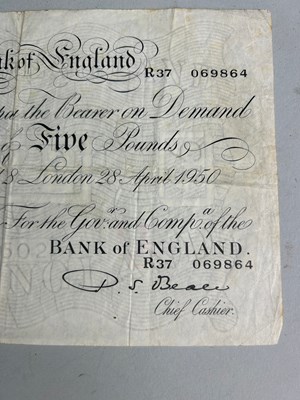 nk of England
R37 069864
pay the Bearer on Demand
of Five Pounds
8 London 28 April 1950
For the Gov.r and Comp.a of the
BANK of ENGLAND.
R37 069864
P. S. Beale
Chief Cashier.